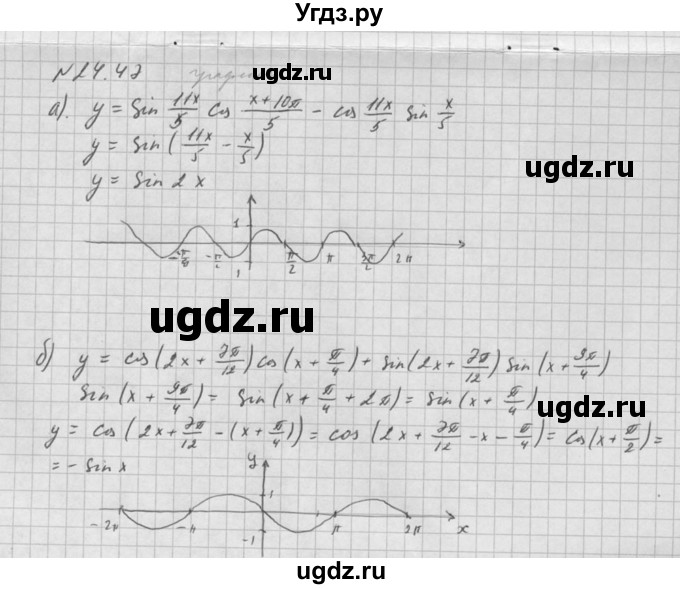 Угдз.ру
№24.42
ugdz.ru
а). y = sin 11x/5 cos (x+10π)/5 − cos 11x/5 sin x/5
ugdz.ru
y = sin(11x/5 − x/5)
ugdz.ru
y = sin 2x
1
−π/2 π/2 π 3π/2 2π
1
ugdz.ru
б) y = cos(2x + 7π/12) cos(x + π/4) + sin(2x + 7π/12) sin(x + 9π/4)
sin(x + 9π/4) = sin(x + π/4 + 2π) = sin(x + π/4)
ugdz.ru
y = cos(2x + 7π/12 − (x + π/4)) = cos(2x + 7π/12 − x − π/4) = cos(x + π/2) =
= − sin x
y
1
−2π −π π 2π x
−1
ugdz.ru
ugdz.ru